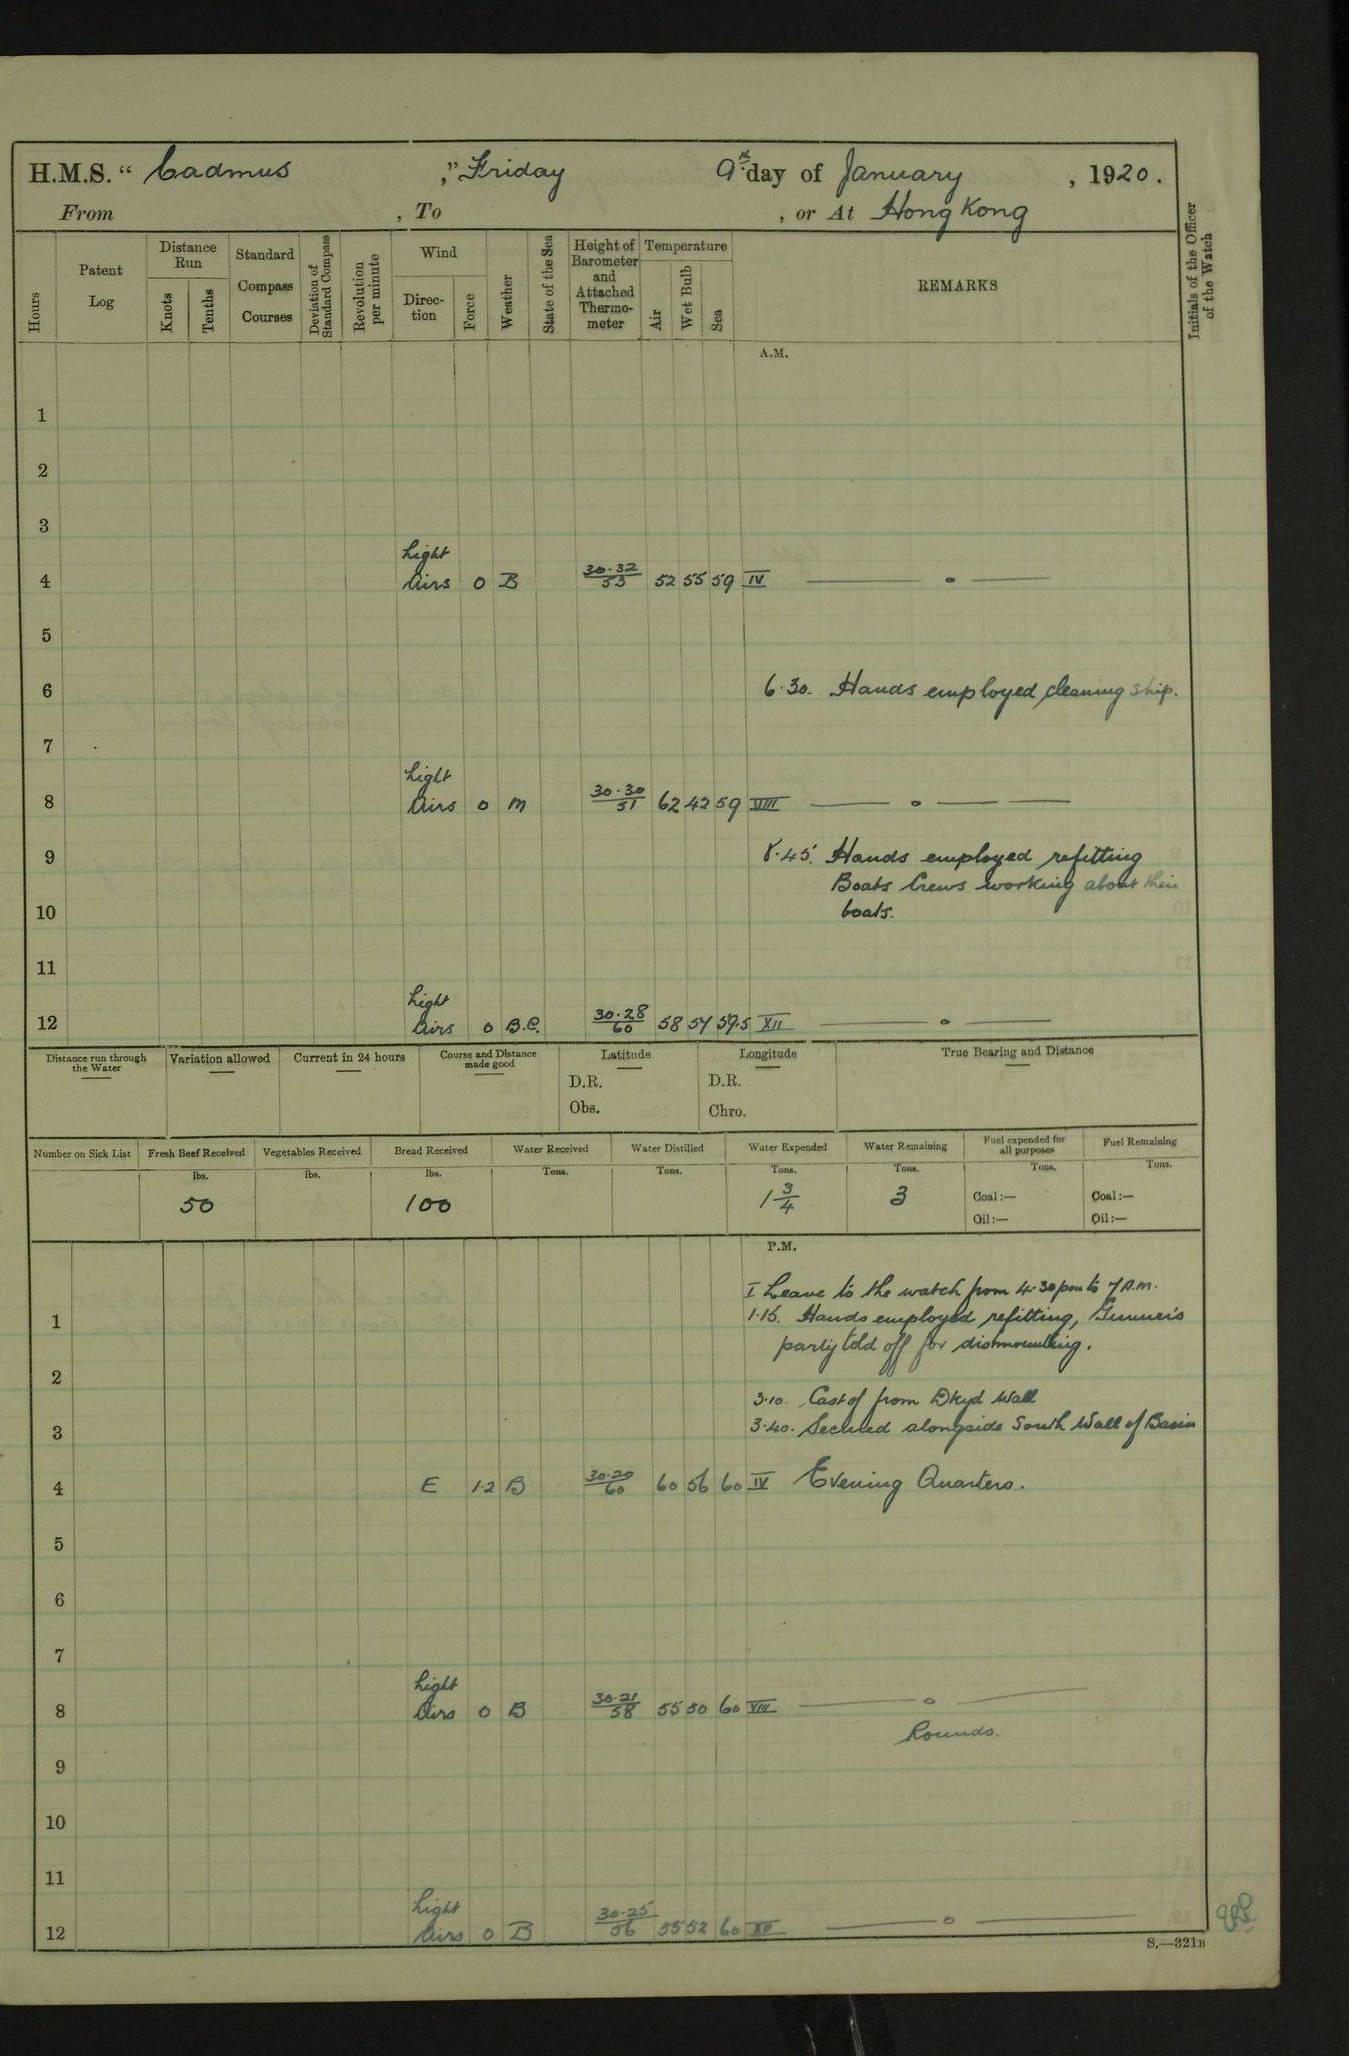 H.M.S. “ Cadmus ,” Friday 9th day of January , 1920.
From , To , or At Hong Kong
Hours
Patent Log
Distance Run
Knots
Tenths
Standard Compass Courses
Deviation of Standard Compass
Revolution per minute
Wind
Direc-tion
Force
Weather
State of the Sea
Height of Barometer and Attached Thermo-meter
Temperature
Air
Wet Bulb
Sea
REMARKS
Initials of the Officer of the Watch
A.M.
1
2
3
Light
4 Airs 0 B 30.32/53 52 55 59 IV
5
6 6.30. Hands employed cleaning ship.
7
Light
8 Airs 0 M 30.30/51 62 42 59 VIII
9 8.45. Hands employed refitting
Boats Crews working about their
10 boats.
11
Light
12 Airs 0 B.C. 30.28/60 58 54 59.5 XII
Distance run through the Water
Variation allowed
Current in 24 hours
Course and Distance made good
Latitude
D.R.
Obs.
Longitude
D.R.
Chro.
True Bearing and Distance
Number on Sick List
Fresh Beef Received
lbs.
50
Vegetables Received
lbs.
Bread Received
lbs.
100
Water Received
Tons.
Water Distilled
Tons.
Water Expended
Tons.
1 3/4
Water Remaining
Tons.
3
Fuel expended for all purposes
Tons.
Coal:—
Oil:—
Fuel Remaining
Tons.
Coal:—
Oil:—
P.M.
I Leave to the watch from 4.30pm to 7 A.M.
1 1.15. Hands employed refitting, Gunner's
party told off for dismounting.
2
3.10. Cast of from Dkyd Wall
3 3.40. Secured alongside South Wall of Basin
4 E 1.2 B 30.20/60 60 56 60 IV Evening Quarters.
5
6
7
Light
8 Airs 0 B 30.21/58 55 50 60 VIII
Rounds.
9
10
11
Light
12 Airs 0 B 30.25/56 55 52 60 XII
S.—321B